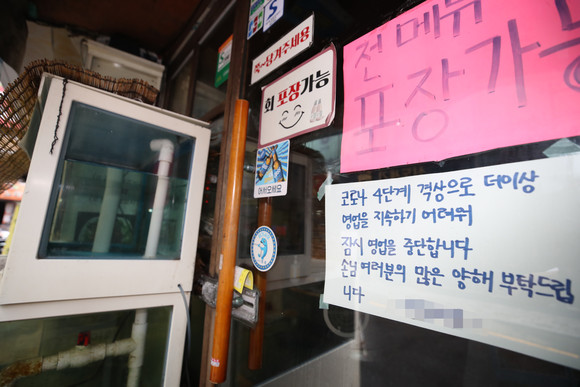 쭈~욱 남겨주세용
회 포장가능
어서오세요
전메뉴
포장가능
코로나 4단계 격상으로 더이상
영업을 지속하기 어려워
잠시 영업을 중단합니다
손님 여러분의 많은 양해 부탁드립
니다